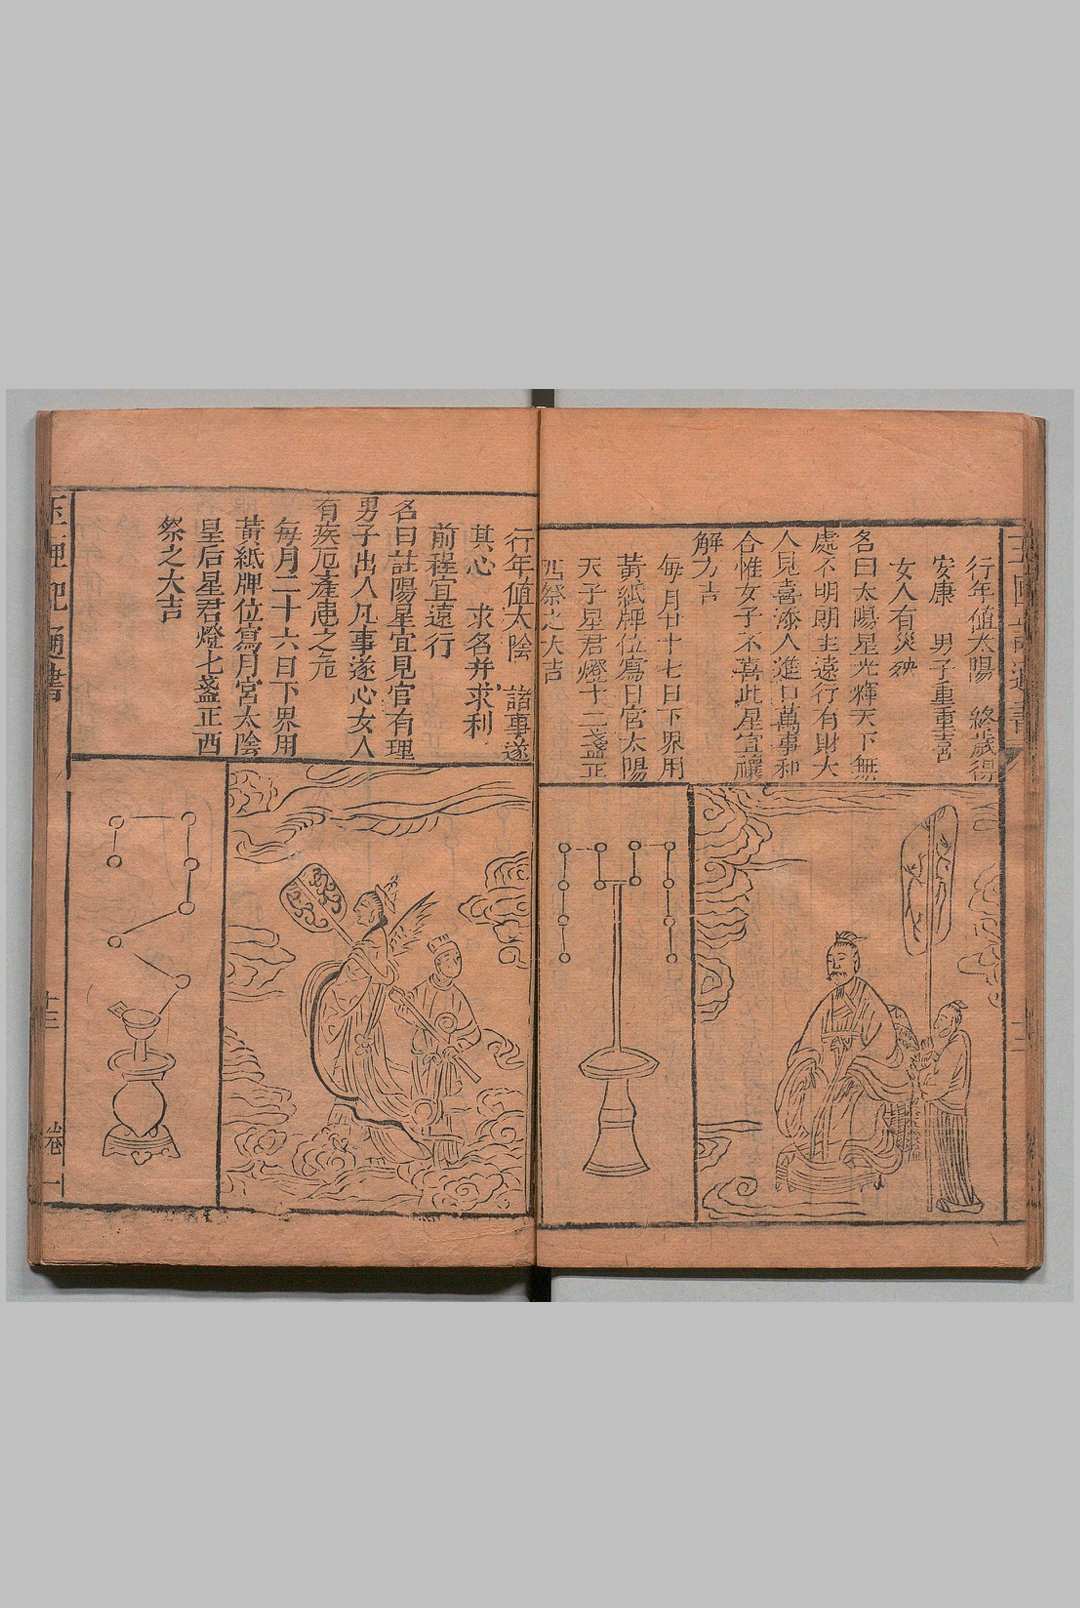 行年值太陽　終歲得
安康　男子重重喜
女人有災殃
名曰太陽星光輝天下無
處不明朗主遠行有財大
人見喜添人進口萬事和
合惟女子不喜此星宜禳
解方吉
每月廿七日下界用
黃紙牌位寫日宮太陽
天子星君燈十二盞正
西祭之大吉
行年值太陰　諸事遂
其心　求名并求利
前程宜遠行
名曰註陽星宜見官有理
男子出入凡事遂心女人
有疾厄產唗之危
每月二十六日下界用
黃紙牌位寫月宮太陰
皇后星君燈七盞正西
祭之大吉
玉匣記通書
十三
卷一